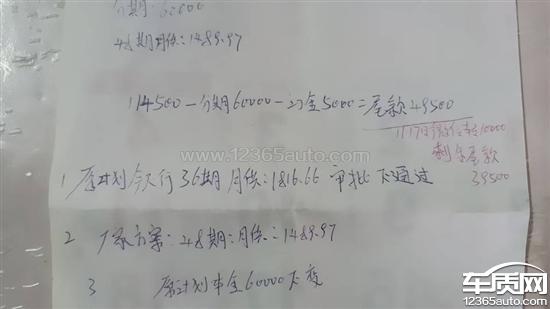 分期:60000
48期月供:1489.97
114500-分期60000-订金5000=尾款49500
11月17日 10000
剩余尾款
39500
www.12365auto.com
1 原计划 行36期 月供:1816.66 审批不通过
2 厂家方案:48期:月供:1489.97
3 原计划本金60000不变
车质网
12365auto.com